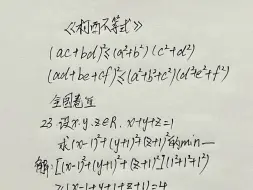 《柯西不等式》
(ac+bd)²≤(a²+b²)(c²+d²)
(ad+be+cf)²≤(a²+b²+c²)(d²+e²+f²)
全国卷Ⅲ
23 设x.y.z∈R. x+y+z=1
求(x-1)²+(y+1)²+(z+1)²的min
解:[(x-1)²+(y+1)²+(z+1)²](1²+1²+1²)
≥(x-1+y+1+z+1)=4